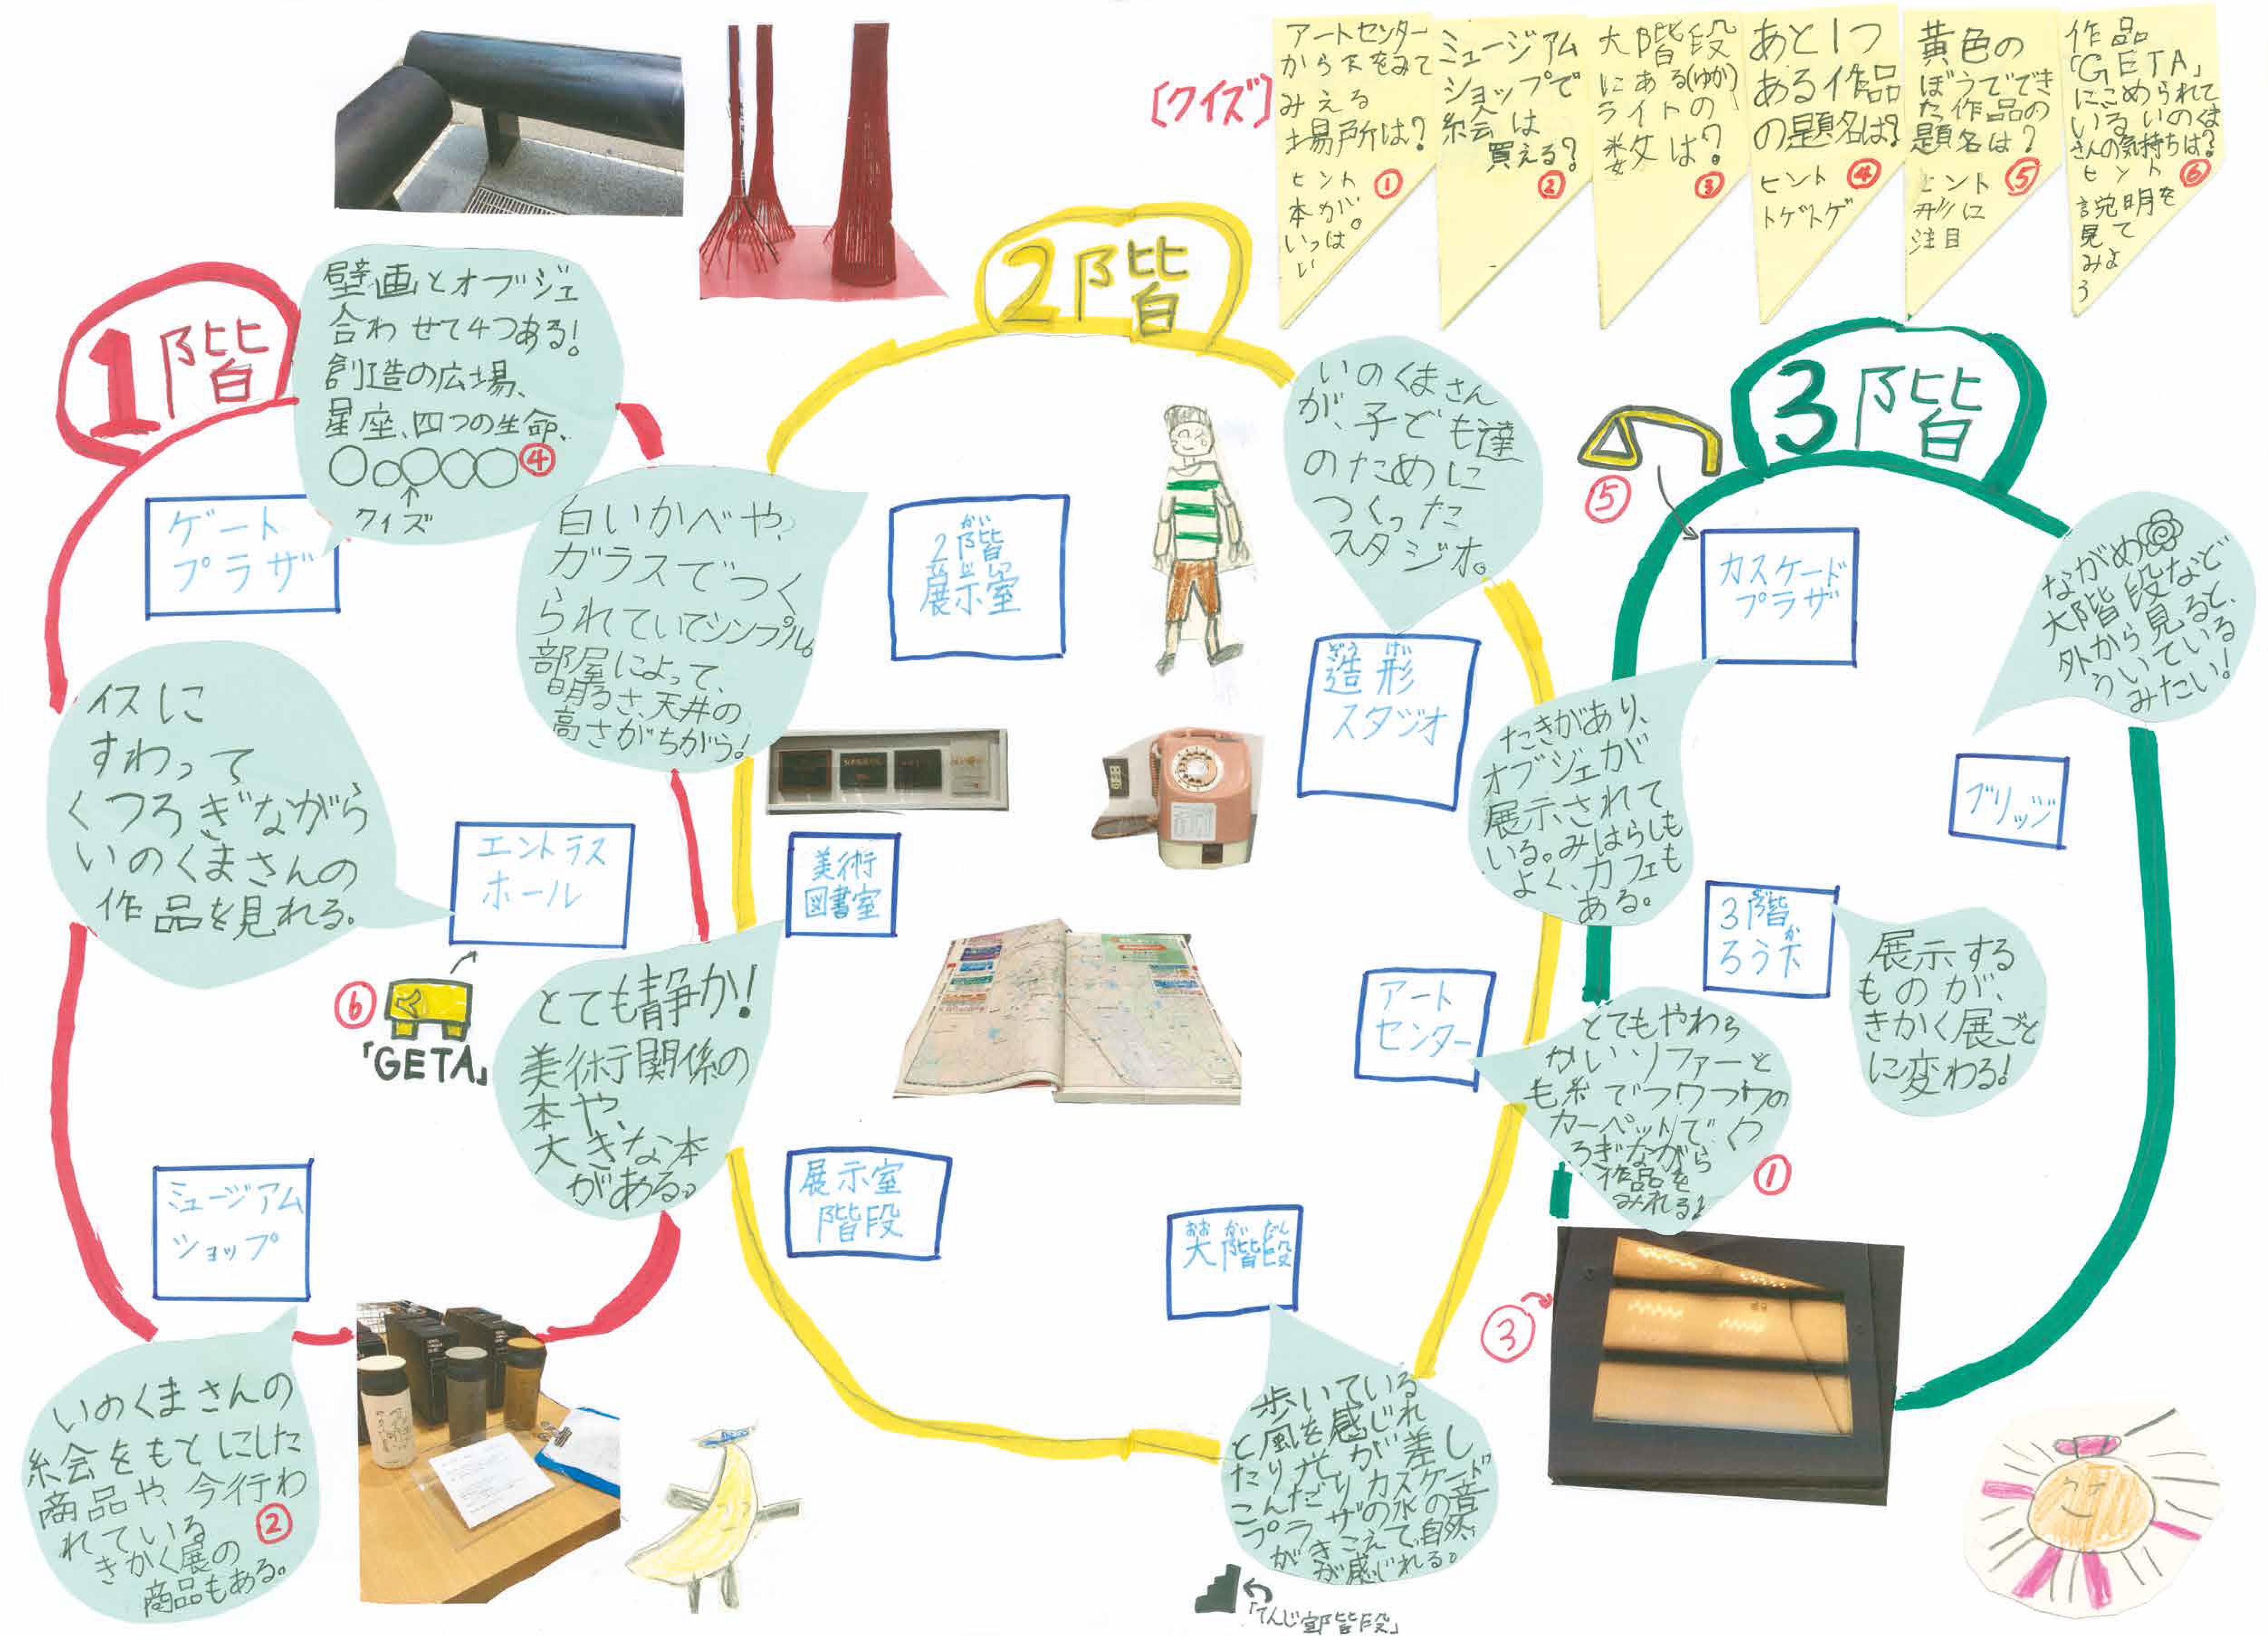 [クイズ]
アートセンター
から下をみて
みえる
場所は?
ヒント ①
本が、
いっぱ
い。
ミュージアム
ショップで
絵は
買える?
②
大階段
にある(ゆか)
ライトの
数は?
③
あと1つ
ある作品
の題名は?
ヒント ④
トゲトゲ
黄色の
ぼうででき
た作品の
題名は?
ヒント ⑤
形に
注目
作品
「GETA」
にこめられて
いるいのくま
さんの気持ちは?
ヒント ⑥
説明を
見て
みよ
う
1階
壁画とオブジェ
合わせて4つある!
創造の広場、
星座、四つの生命、
〇〇〇〇〇④
↑
クイズ
ゲート
プラザ
イスに
すわって
くつろぎながら
いのくまさんの
作品を見れる。
エントラス
ホール
⑥
「GETA」
ミュージアム
ショップ
いのくまさんの
絵をもとにした
商品や、今行わ
れている ②
きかく展の
商品もある。
2階
白いかべや、
ガラスでつく
られていてシンプル。
部屋によって、
明るさ、天井の
高さがちがう!
がい
2階
てんじしつ
展示室
いのくまさん
が、子ども達
のために
つくった
スタジオ。
ぞう けい
造形
スタジオ
美術
図書室
とても静か!
美術関係の
本や、
大きな本
がある。
アート
センター
とてもやわら
かいソファーと
毛糸でフワフワの
カーペットで、く
ろぎながら
作品を
みれる!
①
展示室
階段
おおかいだん
大階段
歩いている
と風を感じれ
たり光が差し
こんだりカスケード
プラザの水の音
がきこえて、自然
が感じれる。
「てんじ室階段」
3階
⑤
カスケード
プラザ
たきがあり、
オブジェが
展示されて
いる。みはらしも
よく、カフェも
ある。
ながめ
大階段など
外から見ると、
ういている
みたい!
ブリッジ
3階
ろう下
か
展示する
ものが、
きかく展ごと
に変わる!
③